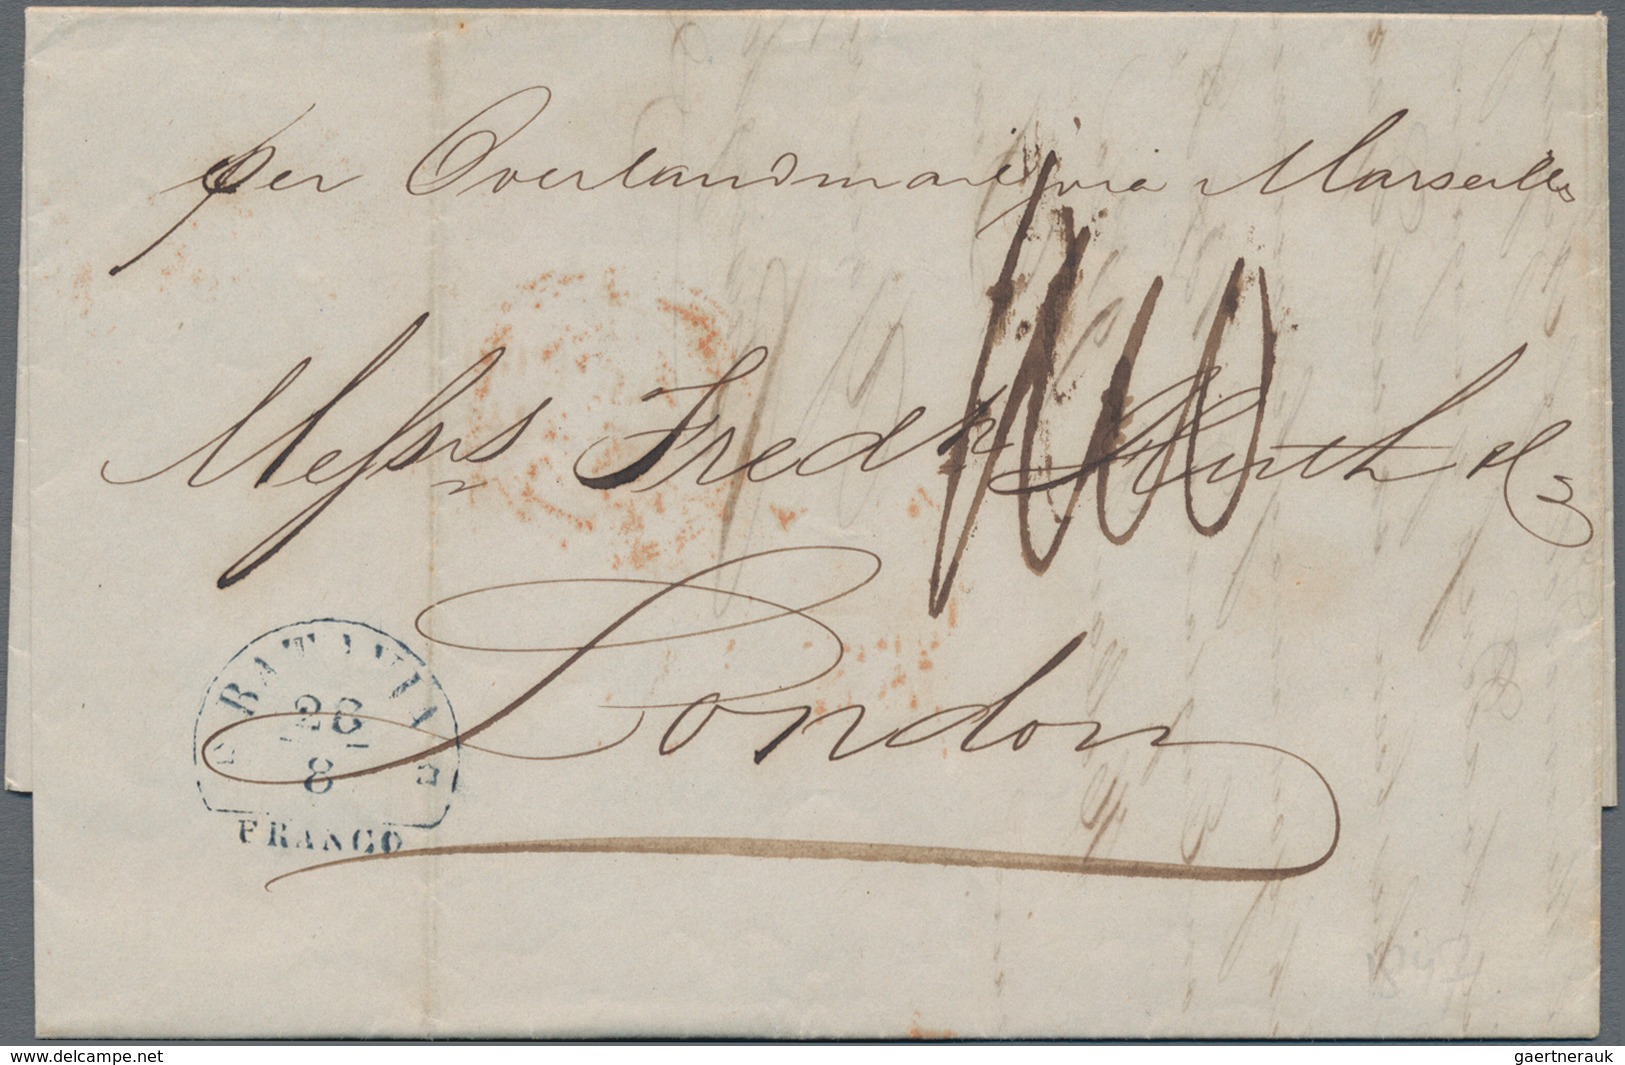 per Overlandmail via Marseilles
Messrs Fredk Huth & Co
London
BATAVIA
28
8
FRANCO
www.delcampe.net
gaertnerauk